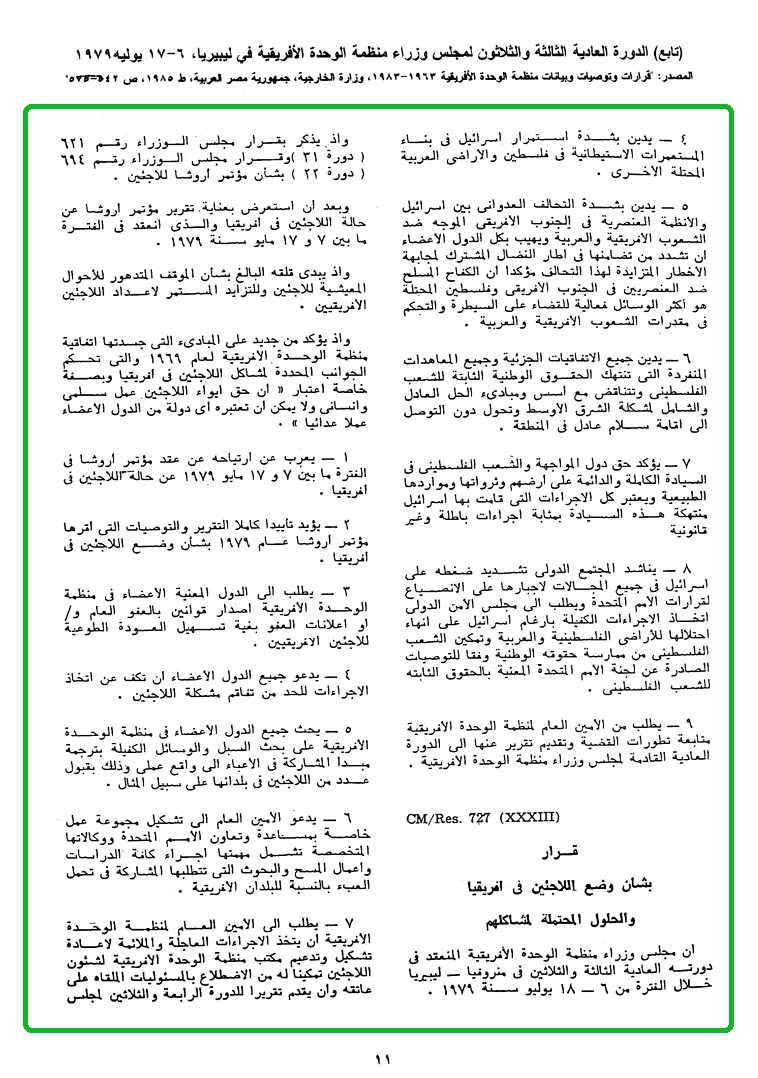 (تابع) الدورة العادية الثالثة والثلاثون لمجلس وزراء منظمة الوحدة الأفريقية في ليبيريا، ٦-١٧ يوليه ١٩٧٩
المصدر: "قرارات وتوصيات وبيانات منظمة الوحدة الأفريقية ١٩٦٣-١٩٨٣، وزارة الخارجية، جمهورية مصر العربية، ط ١٩٨٥، ص ٥٤٢-
٤ — يدين بشدة استمرار اسرائيل فى بناء
المستعمرات الاستيطانية فى فلسطين والأراضى العربية
المحتلة الأخرى .
٥ — يدين بشدة التحالف العدوانى بين اسرائيل
والانظمة العنصرية فى الجنوب الأفريقى الموجه ضد
الشعوب الأفريقية والعربية ويهيب بكل الدول الأعضاء
ان تشدد من تضامنها فى اطار النضال المشترك لمجابهة
الأخطار المتزايدة لهذا التحالف مؤكدا ان الكفاح المسلح
ضد العنصريين فى الجنوب الأفريقى وفلسطين المحتلة
هو أكثر الوسائل فعالية للقضاء على السيطرة والتحكم
فى مقدرات الشعوب الأفريقية والعربية .
٦ — يدين جميع الاتفاقيات الجزئية وجميع المعاهدات
المنفردة التى تنتهك الحقوق الوطنية الثابتة للشعب
الفلسطينى وتتناقض مع أسس ومبادىء الحل العادل
والشامل لمشكلة الشرق الأوسط وتحول دون التوصل
الى اقامة سلام عادل فى المنطقة .
٧ — يؤكد حق دول المواجهة والشعب الفلسطينى فى
السيادة الكاملة والدائمة على أرضهم وثرواتها ومواردها
الطبيعية ويعتبر كل الاجراءات التى قامت بها اسرائيل
منتهكة هذه السيادة بمثابة اجراءات باطلة وغير
قانونية
٨ — يناشد المجتمع الدولى تشديد ضغطه على
اسرائيل فى جميع المجالات لاجبارها على الانصياع
لقرارات الأمم المتحدة ويطلب الى مجلس الأمن الدولى
اتخاذ الاجراءات الكفيلة بارغام اسرائيل على انهاء
احتلالها للأراضى الفلسطينية والعربية وتمكين الشعب
الفلسطينى من ممارسة حقوقه الوطنية وفقا للتوصيات
الصادرة عن لجنة الأمم المتحدة المعنية بالحقوق الثابته
للشعب الفلسطينى .
٩ — يطلب من الأمين العام لمنظمة الوحدة الأفريقية
متابعة تطورات القضية وتقديم تقرير عنها الى الدورة
العادية القادمة لمجلس وزراء منظمة الوحدة الأفريقية .
CM/Res. 727 (XXXIII)
قرار
بشأن وضع اللاجئين فى افريقيا
والحلول المحتملة لمشاكلهم
ان مجلس وزراء منظمة الوحدة الأفريقية المنعقد فى
دورته العادية الثالثة والثلاثين فى منروفيا — ليبيريا
خلال الفترة من ٦ — ١٨ يوليو سنة ١٩٧٩ .
واذ يذكر بقرار مجلس الوزراء رقم ٦٢١
( دورة ٣١ ) وقرار مجلس الوزراء رقم ٦٩٤
( دورة ٢٢ ) بشأن مؤتمر أروشا للاجئين .
وبعد أن استعرض بعناية تقرير مؤتمر أروشا عن
حالة اللاجئين فى أفريقيا والذى انعقد فى الفترة
ما بين ٧ و ١٧ مايو سنة ١٩٧٩ .
واذ يبدى قلقه البالغ بشأن الموقف المتدهور للأحوال
المعيشية للاجئين وللتزايد المستمر لاعداد اللاجئين
الأفريقيين .
واذ يؤكد من جديد على المبادىء التى جسدتها اتفاقية
منظمة الوحدة الأفريقية لعام ١٩٦٩ والتى تحكم
الجوانب المحددة لمشاكل اللاجئين فى أفريقيا وبصفة
خاصة اعتبار « ان حق ايواء اللاجئين عمل سلمى
وانسانى ولا يمكن ان تعتبره أى دولة من الدول الأعضاء
عملا عدائيا » .
١ — يعرب عن ارتياحه عن عقد مؤتمر أروشا فى
الفترة ما بين ٧ و ١٧ مايو ١٩٧٩ عن حالة اللاجئين فى
أفريقيا .
٢ — يؤيد تأييدا كاملا التقرير والتوصيات التى اقرها
مؤتمر أروشا عام ١٩٧٩ بشأن وضع اللاجئين فى
أفريقيا .
٣ — يطلب الى الدول المعنية الأعضاء فى منظمة
الوحدة الأفريقية اصدار قوانين بالعفو العام و/
او اعلانات العفو بغية تسهيل العودة الطوعية
للاجئين الافريقيين .
٤ — يدعو جميع الدول الأعضاء ان تكف عن اتخاذ
الاجراءات للحد من تفاقم مشكلة اللاجئين .
٥ — يحث جميع الدول الأعضاء فى منظمة الوحدة
الأفريقية على بحث السبل والوسائل الكفيلة بترجمة
مبدا المشاركة فى الأعباء الى واقع عملى وذلك بقبول
عدد من اللاجئين فى بلدانها على سبيل المثال .
٦ — يدعو الأمين العام الى تشكيل مجموعة عمل
خاصة بمساعدة وتعاون الأمم المتحدة ووكالاتها
المتخصصة تشمل مهمتها اجراء كافة الدراسات
وأعمال المسح والبحوث التى تتطلبها المشاركة فى تحمل
العبء بالنسبة للبلدان الأفريقية .
٧ — يطلب الى الأمين العام لمنظمة الوحدة
الأفريقية أن يتخذ الاجراءات العاجلة والملائمة لاعادة
تشكيل وتدعيم مكتب منظمة الوحدة الأفريقية لشئون
اللاجئين تمكينا له من الاضطلاع بالمسئوليات الملقاه على
عاتقه وأن يقدم تقريرا للدورة الرابعة والثلاثين لمجلس
١١